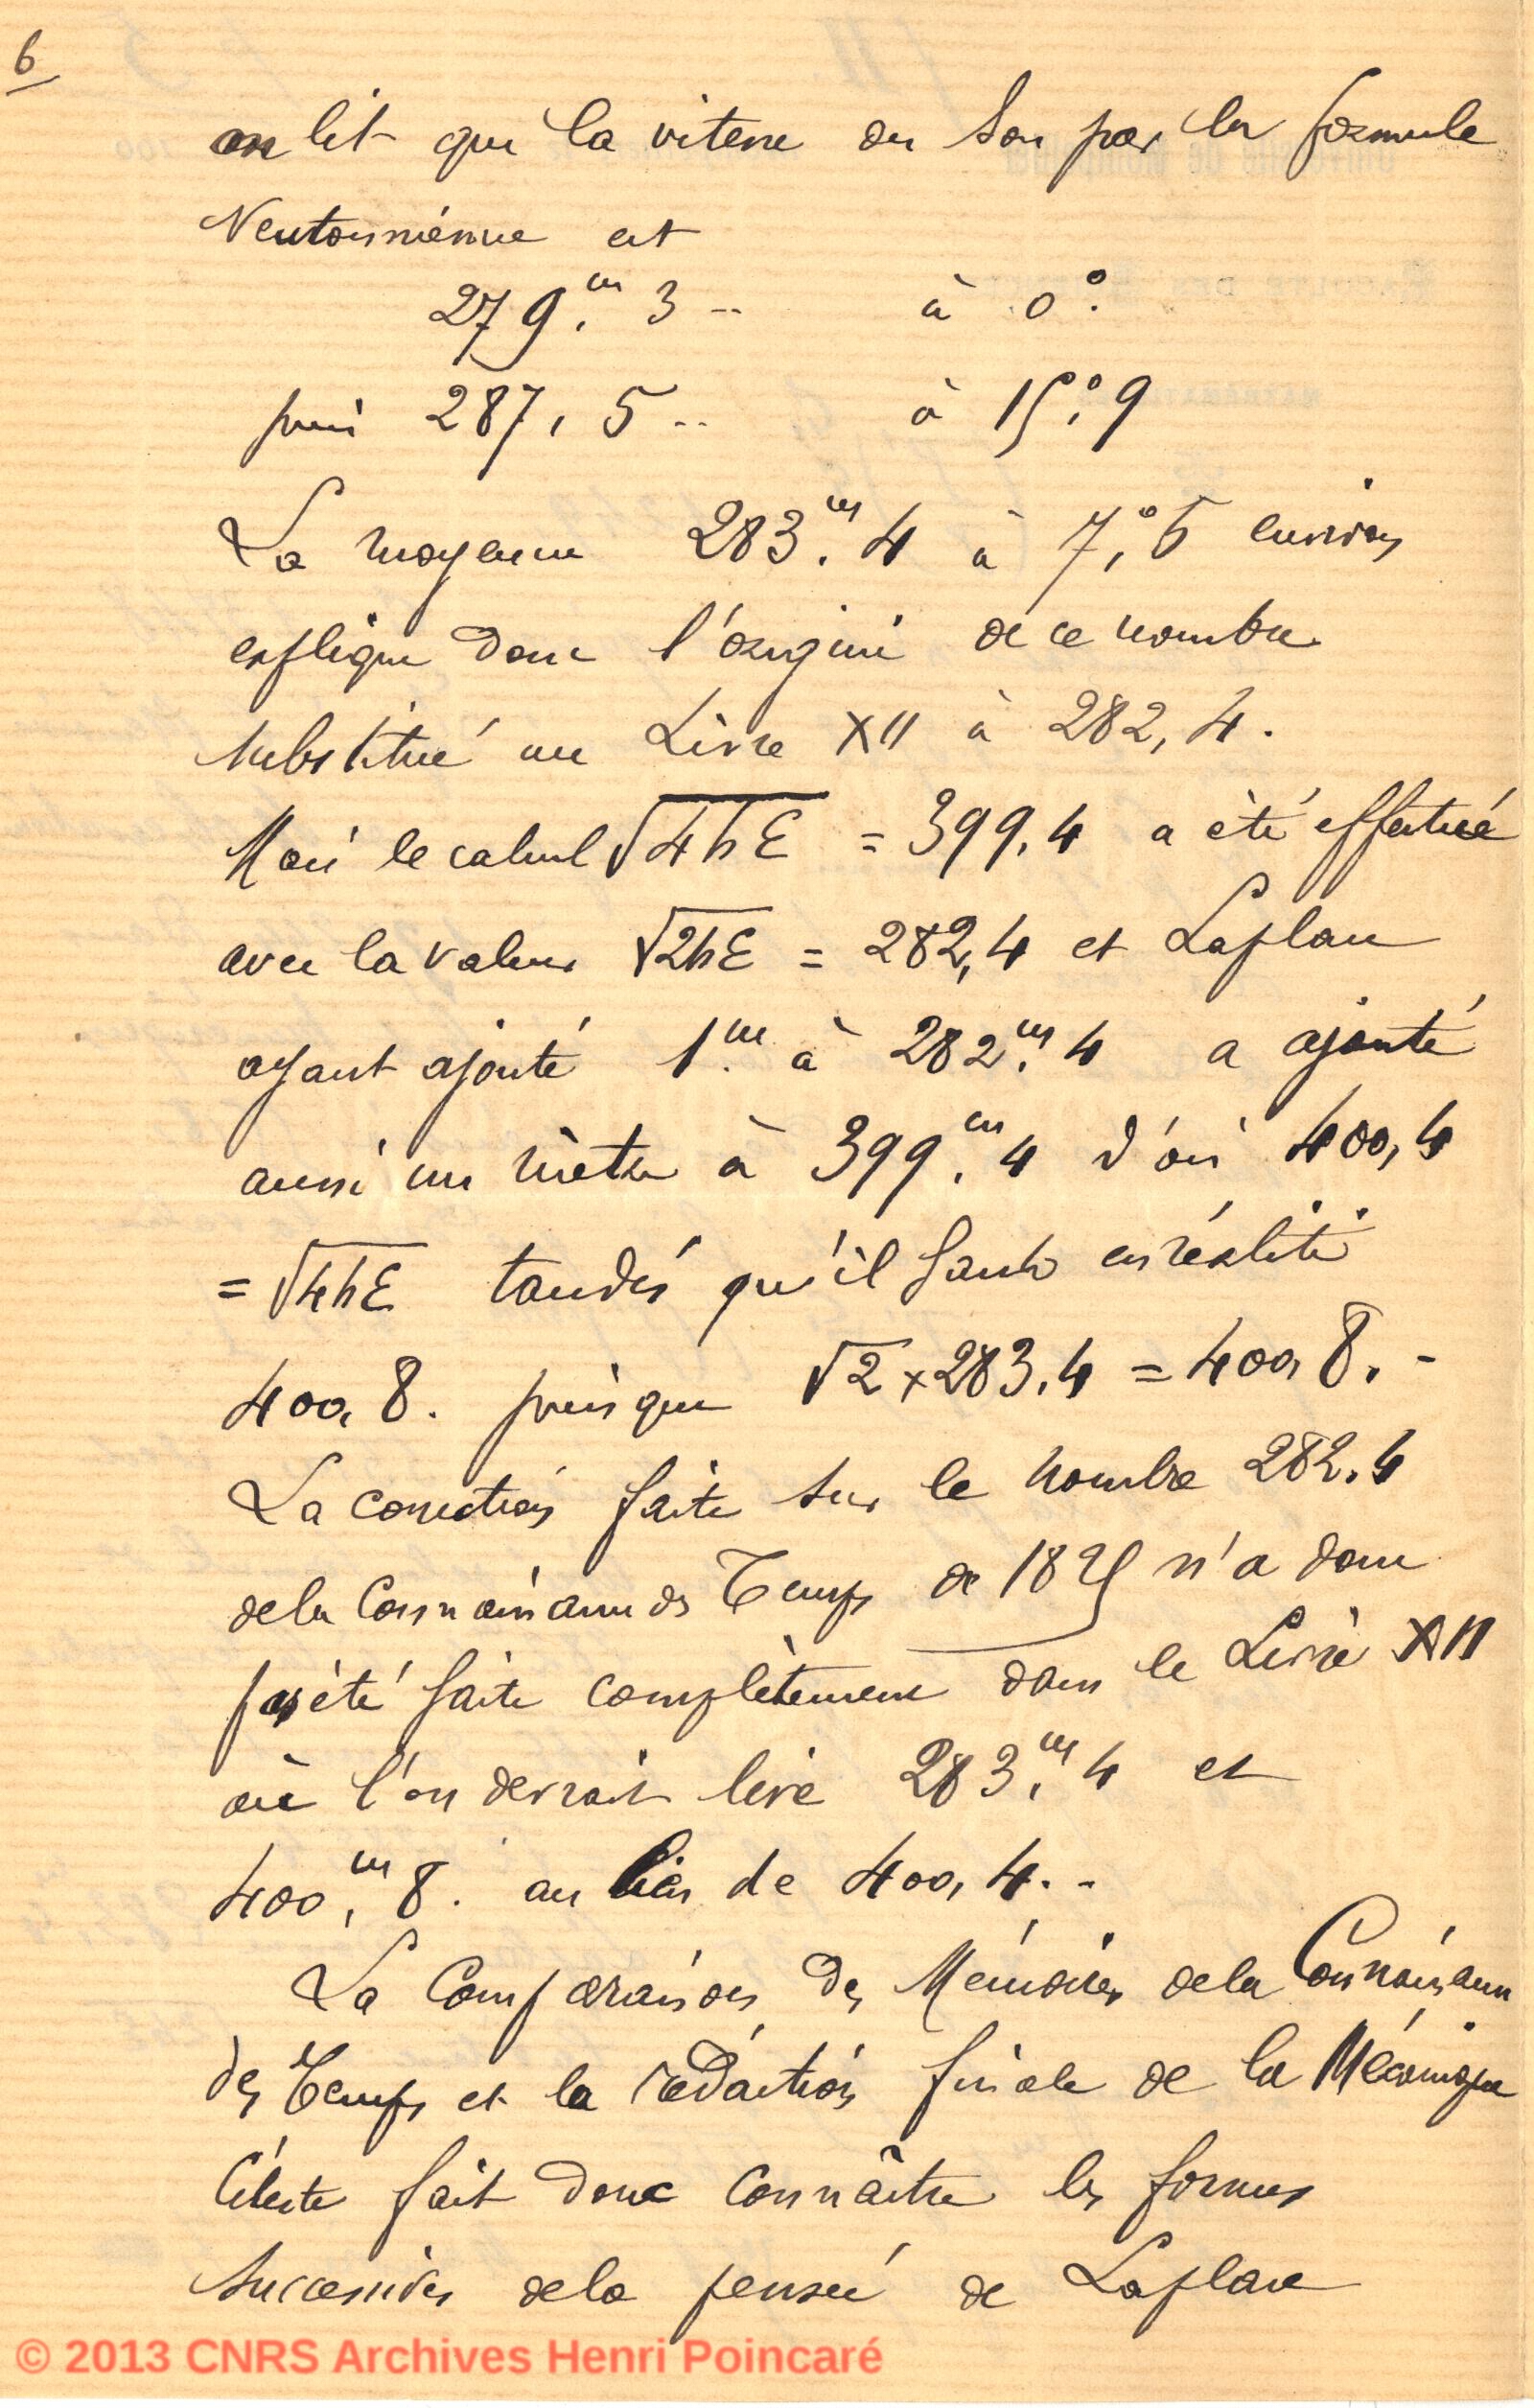 6
on lit que la vitesse du son par la formule
Neutonniénne est
279,m 3 .. à 0°.
puis 287, 5 .. à 15,°9
La moyenne 283,m 4 à 7,°5 environ
explique donc l'origine de ce nombre
substitué au Livre XII à 282, 4.
Mais le calcul √4hε = 399,4 a été effectué
avec la valeur √2hε = 282,4 et Laplace
ayant ajouté 1m. à 282m,4 a ajouté
aussi un mètre à 399,m 4 d'où 400,4
= √4hε tandis qu'il faut en réalité
400,8. puisque √2 × 283,4 = 400,8. -
La correction faite sur le nombre 282,4
de la Connaissance des Temps de 1825 n'a donc
pas été faite complètement dans le Livre XII
où l'on devrait lire 283,m 4 et
400,m 8. au lieu de 400,4. -
La Comparaison des Mémoires de la Connaissance
des Temps et la rédaction finale de la Mécanique
Céleste fait donc connaître les formes
successives de la pensée de Laplace
© 2013 CNRS Archives Henri Poincaré